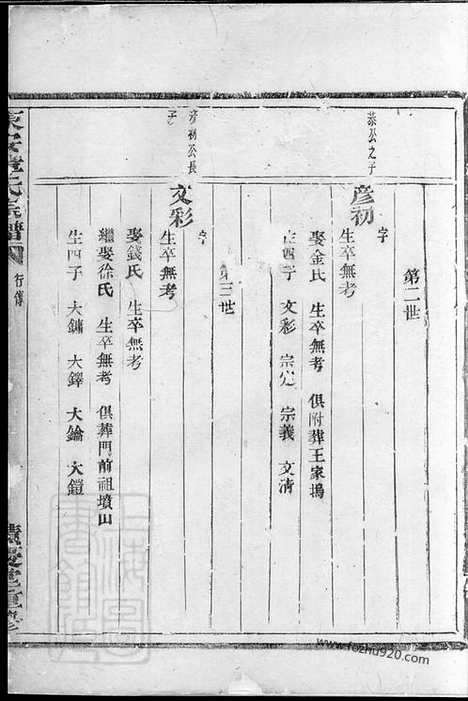 第二世
恭公之子
彦初
字
生卒無考
娶金氏 生卒無考 俱附葬王家塢
生四子 文彩 宗 宗義 文清
第三世
彦初公長子
文彩
字
生卒無考
娶錢氏 生卒無考
繼娶徐氏 生卒無考 俱葬門前祖墳山
生四子 大鏞 大鐸 大鑰 大鎧
氏宗譜
行傳
上海圖書館藏
www.fozhu920.com